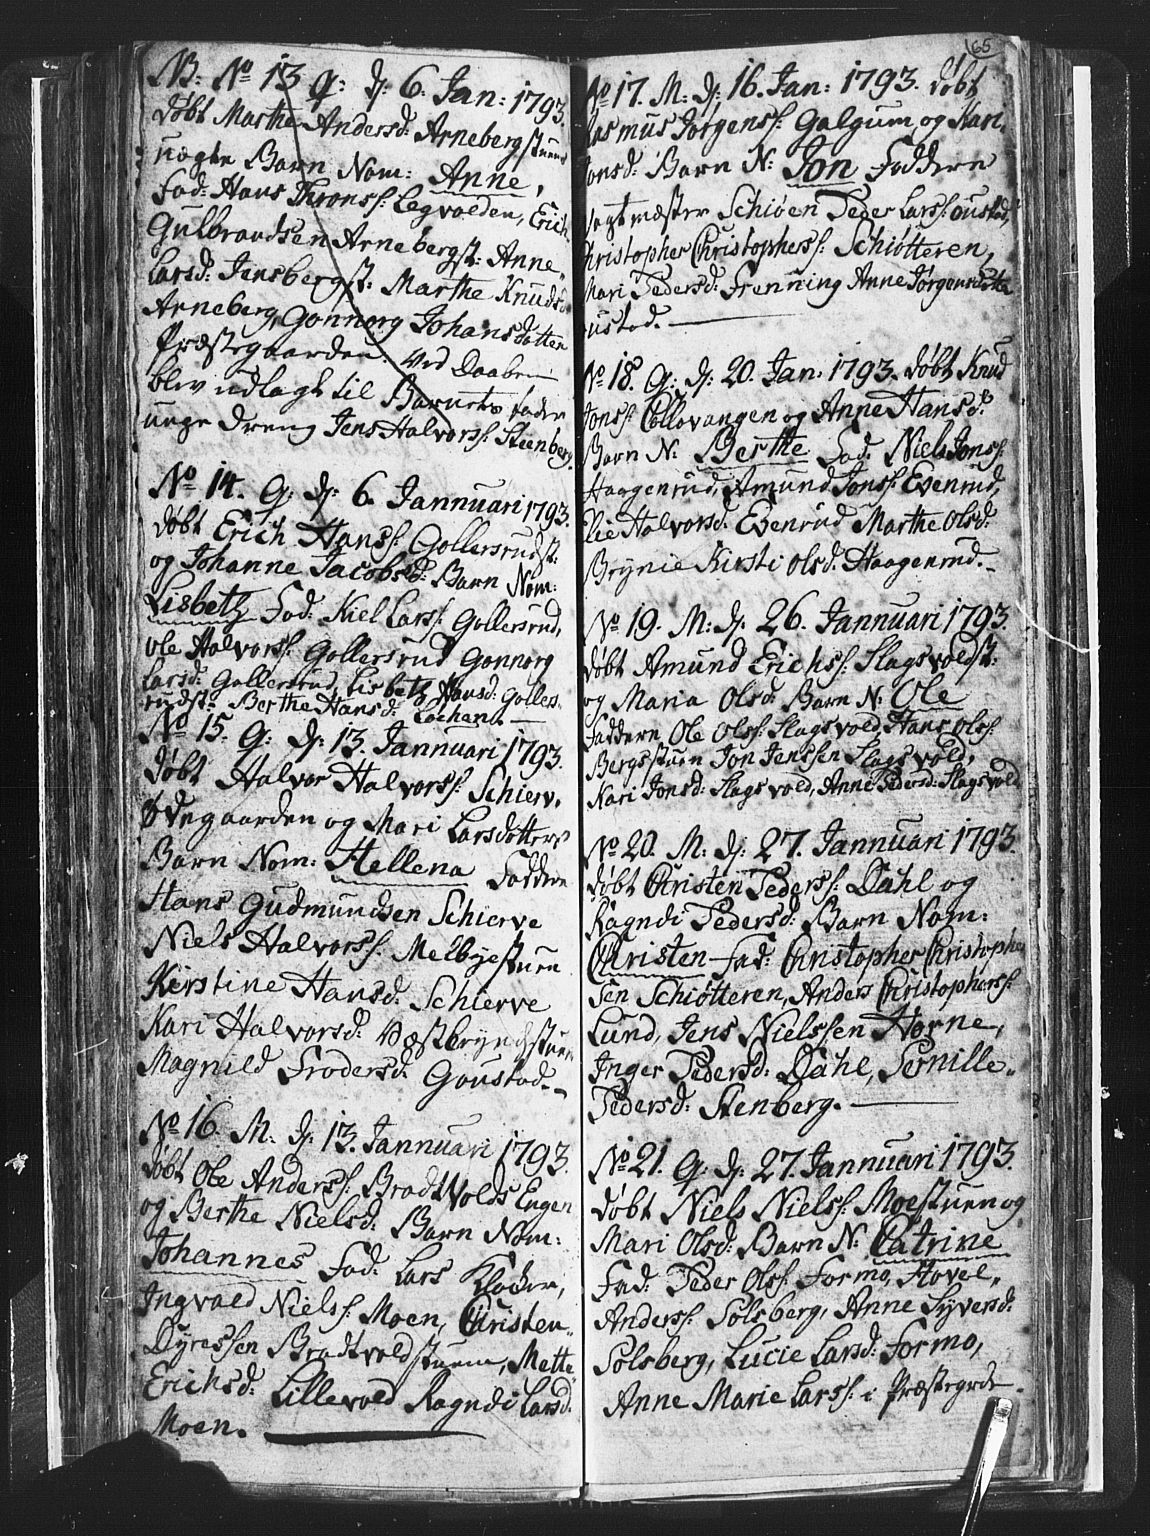 NB: No 13 G: d: 6. Jan: 1793.
døbt Marthe Andersd: Arnebergstuen
uægte Barn Nom: Anne,
Fad: Hans Thronss: Legvolden, Erich
Gulbrandsen Arnebergst: Anne
Larsd: Jensbergst: Marthe Knudsd:
Arneberg, Gonnorg Johansdatter
Præstegaarden. Ved Daaben
blev udlagt til Barnets fader
unge dreng Jens Halvorss: Steenberg.
No 14. G: d: 6. Jannuari 1793.
døbt Erich Hanss: Gollersrudst:
og Johanne Jacobsd: Barn Nom:
Lisbeth Fad: Kiel Larss: Gollersrud,
Ole Halvorss: Gollersrud Gonnorg
Larsd: Gollersrud, Lisbeth Hansd: Gollers-
rudst: Berthe Hansd: Lochenb. —
No 15. G: d: 13. Jannuari 1793.
døbt Halvor Halvorss: Schierv,
Ødegaarden og Mari Larsdotters
Barn Nom: Hellena Faddere
Hans Gudmundsen Schierve
Niels Halvorss: Melbyestuen
Kirstine Hansd: Schierve
Kari Halvorsd: Vestbryndstuen
Magnild Frodersd: Goustad. —
No 16. M. d: 13. Jannuari 1793.
døbt Ole Anderss: BradtVolds Engen
og Berthe Nielsd: Barn Nom:
Johannes Fad: Lars Klocker,
Ingvald Nielss: Moen, Christen
Dyressen Bradtvoldstuen, Mette
Erichsd: Lillevold Ragndi Larsd:
Moen.
65
No 17. M: d: 16. Jan: 1793. døbt
Rasmus Jørgenss: Galgum og Kari
Jonsd: Barn N: Jon Faddere
Vagtmæster Schiøen Peder Larss: oustad,
Christopher Christopherss: Schiøtteren,
Mari Pedersd: Frenning Anne Jørgensdotter
oustad.
No 18. G: d: 20. Jan: 1793. døbt Knud
Jonss: Collovangen og Anne Hansd:
Barn N: Berthe Fad: Niels Jonss:
Haagenrud, Amund Jonss: Evenrud,
Elie Halvorsd: Evenrud Marthe Olsd:
Brynie Kirsti Olsd: Haagenrud. —
No 19. M: d: 26. Jannuari 1793.
døbt Amund Erichs: Slagsvoldst:
og Maria Olsd: Barn N: Ole
Faddere Ole Olss: Slagsvold, Hans Olss:
Bergsstuen Jon Jenssen Slagsvold,
Kari Jonsd: Slagsvold, Anne Pedersd: Slagsvold
No 20. M. d: 27. Jannuari 1793.
døbt Christen Pederss: Dahl og
Ragndi Pedersd: Barn Nom:
Christen Fad: Christopher Christopher
sen Schiøtteren, Anders Christopherss:
Lund, Jens Nielssen Horne,
Inger Pedersd: Dahl, Pernille
Pedersd: Stenberg.
No 21. G: d: 27. Jannuari 1793.
døbt Niels Nielss: Moestuen og
Mari Olsd: Barn N: Catrine
Fad: Peder Olss: Formo, Hovel,
Anderss: Solsberg, Anne Syversd:
Solsberg, Lucie Larsd: Formo,
Anne Marie Larss: i Præstegrde.